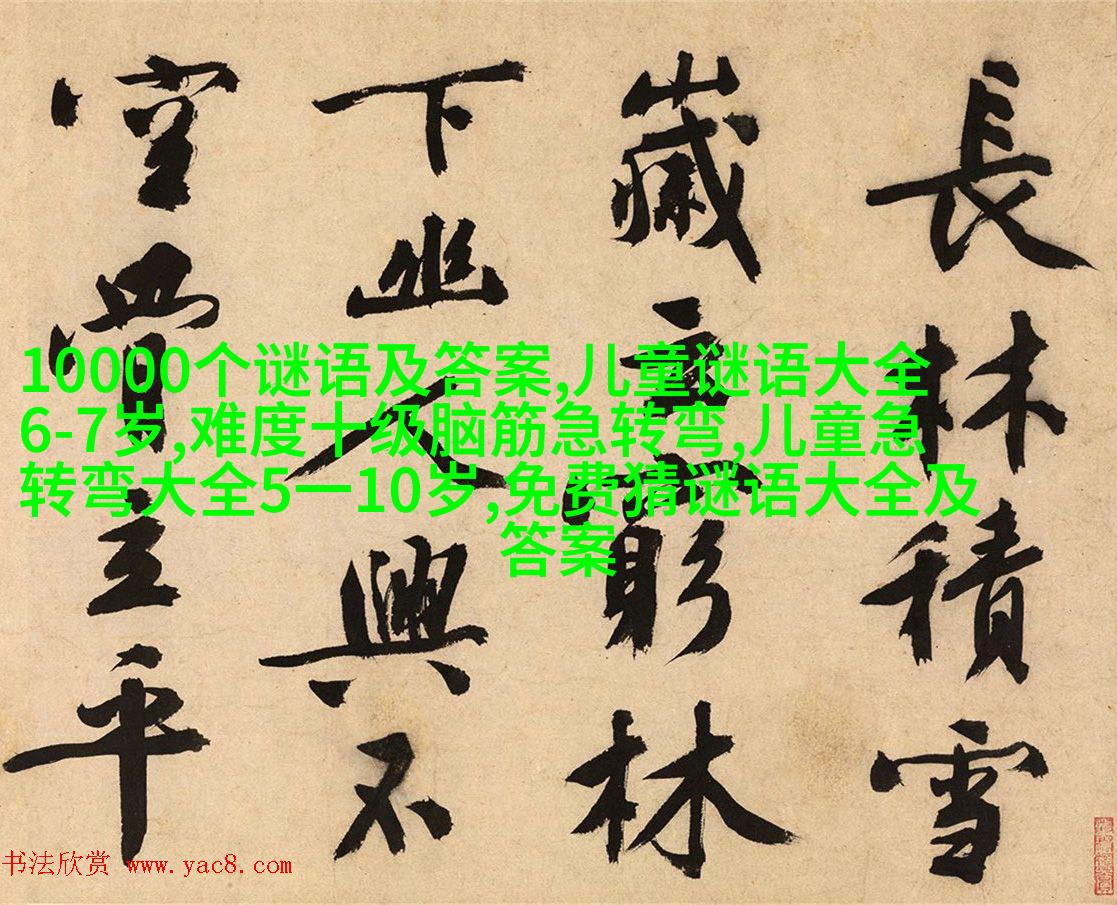 長林積雪
歲云窮林
下幽人興不
空立平
10000个谜语及答案,儿童谜语大全
6-7岁,难度十级脑筋急转弯,儿童急
转弯大全5一10岁,免费猜谜语大全及
答案
书法欣赏 www.yac8.com